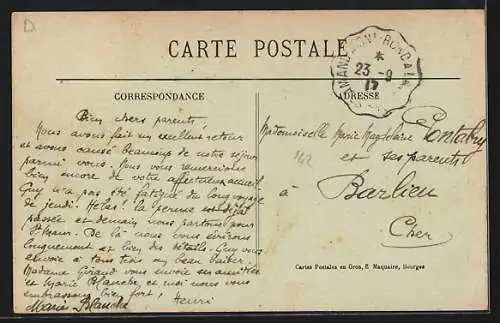 D
CARTE POSTALE
23 -9
17
CORRESPONDANCE
ADRESSE
Bien chers parents,
Nous avons fait un excellent retour
et avons causé beaucoup de notre séjour
parmi vous. Nous vous remercions
bien encore de votre affectueux accueil
Guy n'a pas été fatigué du long voyage
de jeudi. Hélas! la permе est déjà
passée et demain nous partons pour
St Maur. De là nous vous écrirons
longuement et bien des détails. Guy vous
envoie à tous trois un beau baiser.
Madame Giraud vous envoie ses amitiés
et Marie Blanche et moi nous vous
embrassons bien fort!
Henri
Marie Blanche
Mademoiselle Marie Magdeleine
et ses parents
142
à Barlieu
Cher
Cartes Postales en Gros, E. Maquaire, Bourges